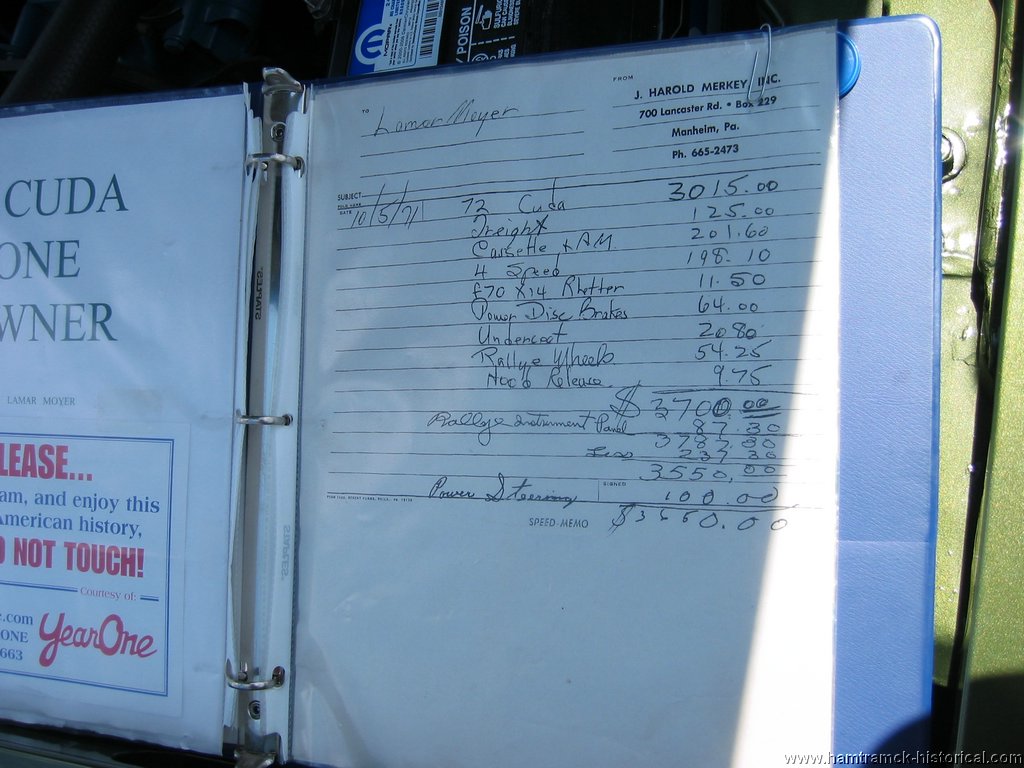 CUDA
ONE
WNER
LAMAR MOYER
LEASE...
am, and enjoy this
American history,
O NOT TOUCH!
Courtesy of:
.com
ONE
663
YearOne
STAPLES
STAPLES
POISON
TO
Lamar Moyer
FROM
J. HAROLD MERKEY, INC.
700 Lancaster Rd. • Box 229
Manheim, Pa.
Ph. 665-2473
SUBJECT
DATE
10/5/71 72 Cuda 3015.00
Freight 125.00
Cassette + AM 201.60
4 Speed 198.10
F70 X14 11.50
Power Disc Brakes 64.00
Undercoat 20 80
Rallye Wheels 54.25
Hood Release 9.75
$ 3700.00
Rallye Instrument Panel 87.30
3787.30
Less 237.30
3550.00
SIGNED
Power Steering 100.00
SPEED-MEMO $3650.00
www.hamtramck-historical.com